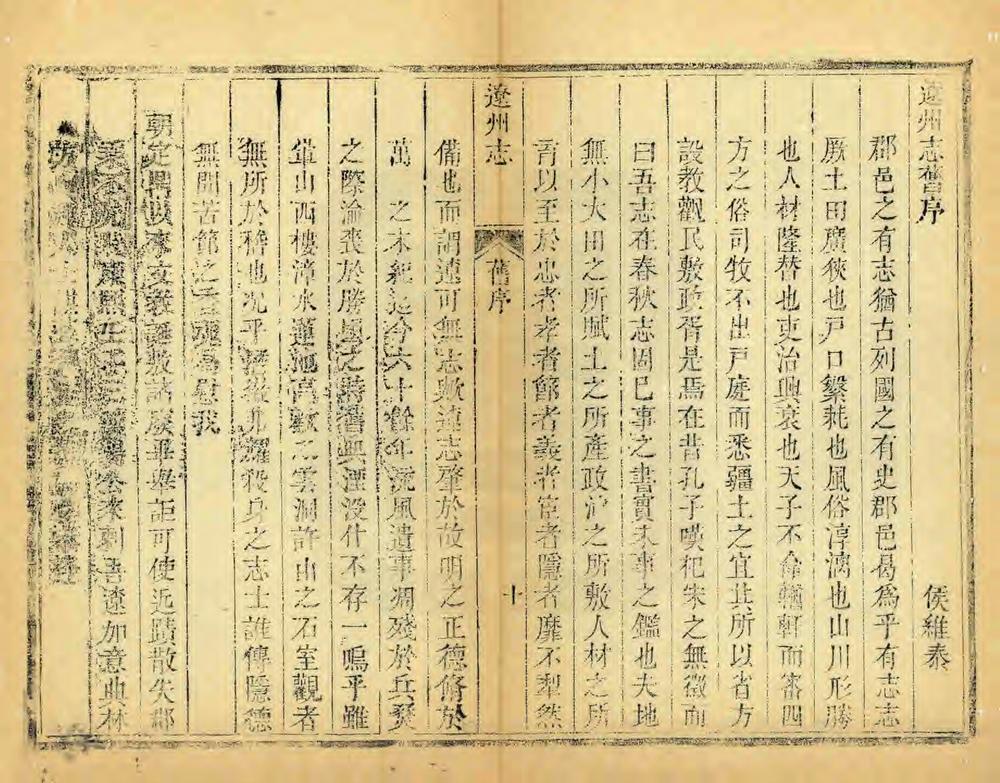 遼州志舊序
侯維泰
郡邑之有志猶古列國之有史郡邑曷為乎有志志
厥土田廣狹也戶口繁耗也風俗淳漓也山川形勝
也人材隆替也吏治興衰也天子不命輶軒而審四
方之俗司牧不出戶庭而悉疆土之宜其所以省方
設教觀民敷政胥是焉在昔孔子嘆杞宋之無徵而
曰吾志在春秋志固已事之書實未事之鑑也夫地
無小大田之所賦土之所產政治之所敷人材之所
育以至於忠者孝者節者義者宦者隱者靡不犁然
遼州志
舊序
十
備也而謂遼可無志歟遼志肇於故明之正德脩於
萬 之末紀迄今六十餘年流風遺事凋殘於兵燹
之際淪喪於勝國之時舊典湮沒什不存一嗚乎雖
輩山西樓漳水蓮池高歡 雲洞許由之石室觀者
無所於稽也況乎 殺身之志士誰傳隱德
無聞苦節之 慰我
朝定鼎以來文教誕敷諸廢畢舉詎可使近蹟散失郡
來刺吾遼加意典林